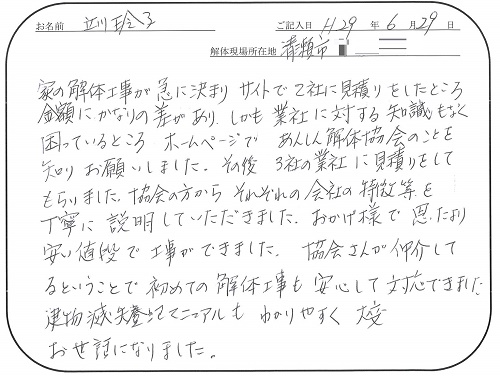 お名前 玲子 ご記入日 H29 年 6 月 29 日
解体現場所在地 清瀬市
家の解体工事が急に決まり サイトで2社に見積りをしたところ
金額にかなりの差があり、しかも業社に対する知識もなく
困っているところ ホームページで あんしん解体協会のことを
知り お願いしました。その後 3社の業社に見積りをして
もらりました。協会の方から それぞれの会社の特徴等を
丁寧に説明していただきました。おかげ様で 思ったより
安い値段で工事ができました。 協会さんが仲介して
るということで初めての解体工事も安心して対応できました
建物滅失登記マニアルも わかりやすく 大変
お世話になりました。